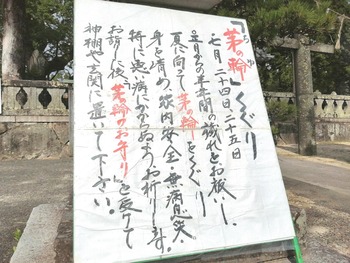 「茅の輪」くぐり
ちのゆ
七月二十四日、二十五日
半年間の穢れをお祓いし、
夏に向って茅の輪をくぐり
身を清め、家内安全、無病息災、
特に悪い病にかからぬようお祈りします。
お詣りに後、茅輪のお守りを受けて
神棚や玄関に置いて下さい。